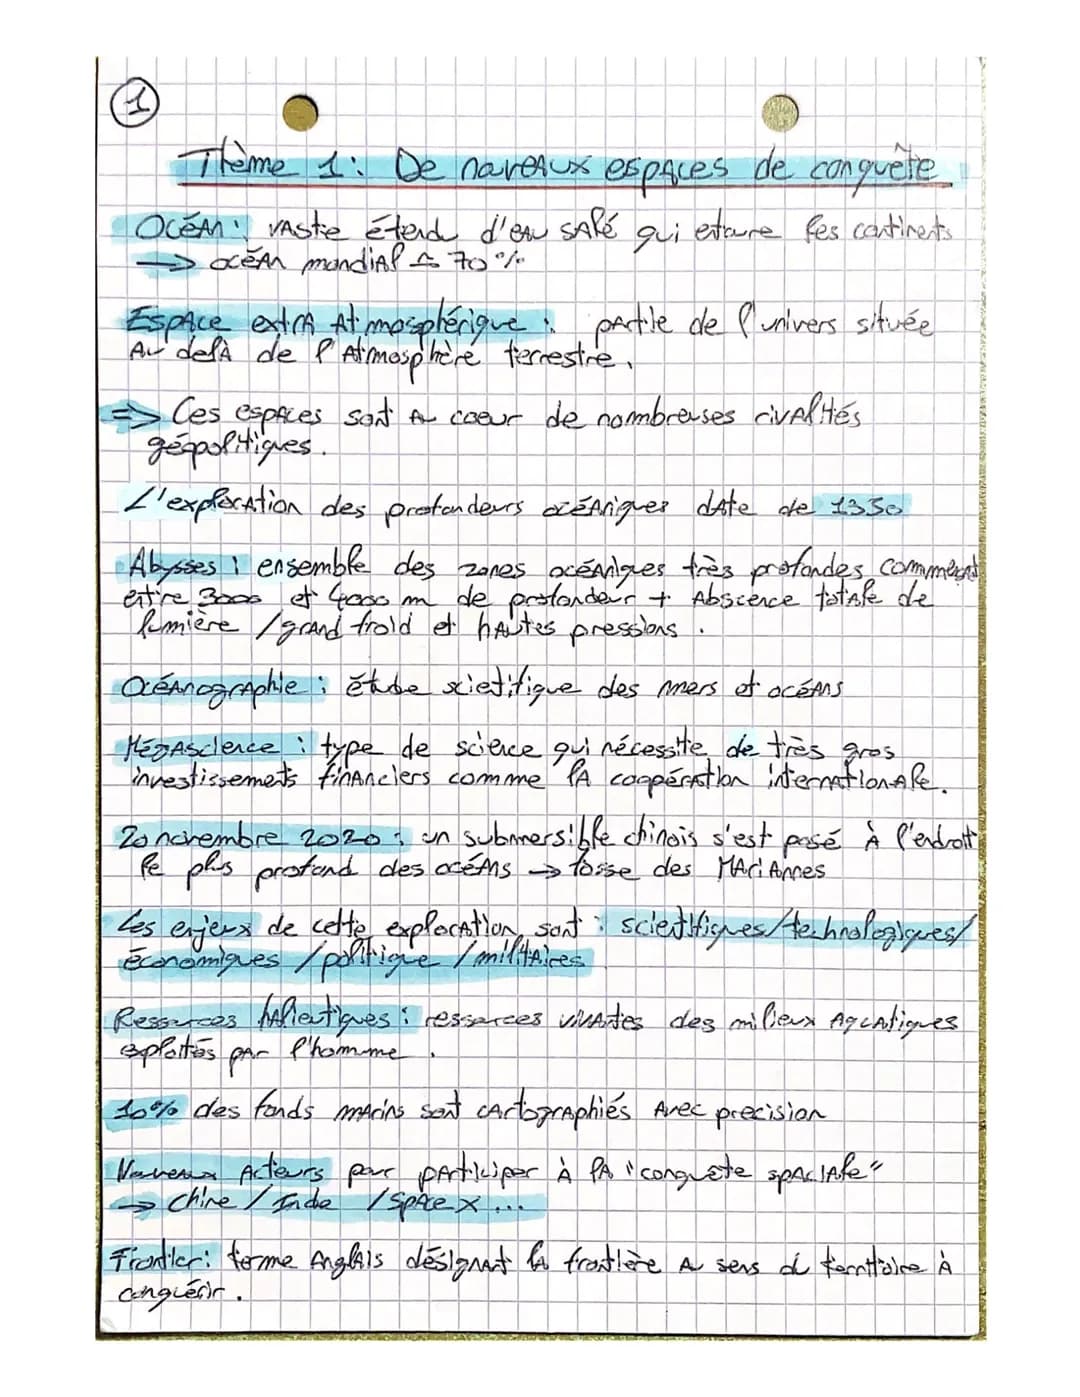 1
Thème 1: De nouveaux espaces de conquête
Océan : vaste étendu d'eau salé qui entoure les continents
→ océan mondial ≃ 70%
Espace extra Atmosphérique : partie de l'univers située
Au delà de l'Atmosphère terrestre.
=> Ces espaces sont Au coeur de nombreuses rivalités
géopolitiques.
L'exploration des profondeurs océaniques date de 1350
Abysses : ensemble des zones océaniques très profondes commençant
entre 3000 et 4000 m de profondeur + Abscence totale de
lumière / grand froid et hautes pressions.
Océanographie : étude scientifique des mers et océans
Mégascience : type de science qui nécessite de très gros
investissements financiers comme la coopération internationale.
20 novembre 2020 : un submersible chinois s'est posé à l'endroit
le plus profond des océans → fosse des Mariannes
Les enjeux de cette exploration sont : scientifiques/technologiques/
économiques / politique / militaires
Ressources halieutiques : ressources vivantes des milieux Aquatiques
exploités par l'homme.
10% des fonds marins sont cartographiés Avec precision
Nouveaux Acteurs pour participer à la "conquête spaciale"
→ Chine / Inde / Space x ...
Frontier: terme Anglais désignant la frontière Au sens du territoire à
conquérir.